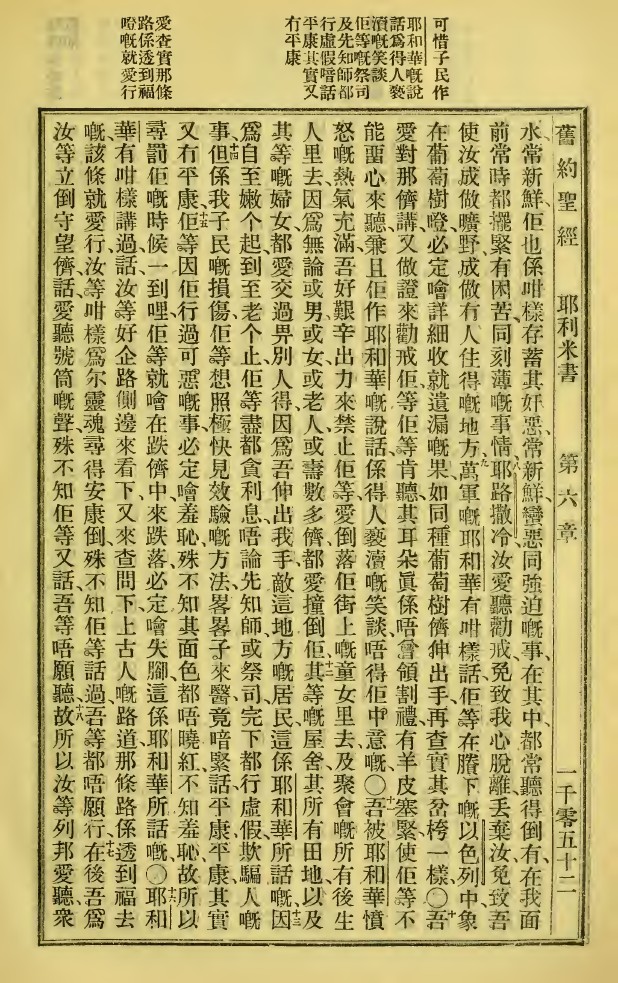 可惜子民作
耶和華嘅說
話爲得人褻
瀆嘅笑談
佢等嘅祭司
及先知師都
行虛假唔話
平康其實又
冇平康
愛查實那條
路係透到福
噔嘅就愛行
舊約聖經 耶利米書 第六章 一千零五十二
水、常新鮮、佢也係咁樣存蓄其奸惡常新鮮、蠻惡同強迫嘅事、在其中都常聽得倒、有在我面
前常時都擺緊有困苦、同刻薄嘅事情、八耶路撒冷、汝愛聽勸戒、免致我心脫離丟棄汝、免致吾
使汝成做曠野、成做冇人住得嘅地方、九萬軍嘅耶和華有咁樣話、佢等在賸下嘅以色列中、象
在葡萄樹噔、必定噲詳細收就遺漏嘅果、如同種葡萄樹儕伸出手、再查實其岔桍一樣〇十吾
愛對那儕講、又做證來勸戒佢等、佢等肯聽、其耳朵眞係唔曾領割禮、有羊皮塞緊、使佢等不
能留心來聽、兼且佢作耶和華嘅說話、係得人褻瀆嘅笑談、唔得佢中意嘅〇十一吾被耶和華憤
怒嘅熱氣充滿、吾好艱辛出力來禁止佢等、愛倒落佢街上嘅童女里去、及聚會嘅所有後生
人里去、因爲無論或男或女、或老人、或壽數多儕、都愛撞倒佢、十二其等嘅屋舍、其所有田地以及
其等嘅婦女、都愛交過畀別人得、因爲吾伸出我手、敵這地方嘅居民、這係耶和華所話嘅、十三因
爲自至嫩个起、到至老个止、佢等盡都貪利息、唔論先知師或祭司、完下都行虛假欺騙人嘅
事、十四但係我子民嘅損傷、佢等想照極快見效驗嘅方法、畧畧子來醫、竟暗緊話、平康平康、其實
又冇平康、十五佢等因佢行過可惡嘅事、必定噲羞恥、殊不知其面色都唔曉紅、不知羞恥、故所以
尋罰佢嘅時候一到哩、佢等就噲在跌儕中來跌落、必定噲失腳、這係耶和華所話嘅〇十六耶和
華有咁樣講過話、汝等好企路側邊來看下、又來查問下上古人嘅路道、那條路係透到福去
嘅、該條就愛行、汝等咁樣爲尔靈魂尋得安康倒、殊不知佢等話過、吾等都唔願行、十七在後吾爲
汝等立倒守望儕、話、愛聽號筒嘅聲、殊不知佢等又話、吾等唔願聽、十八故所以汝等列邦愛聽、衆